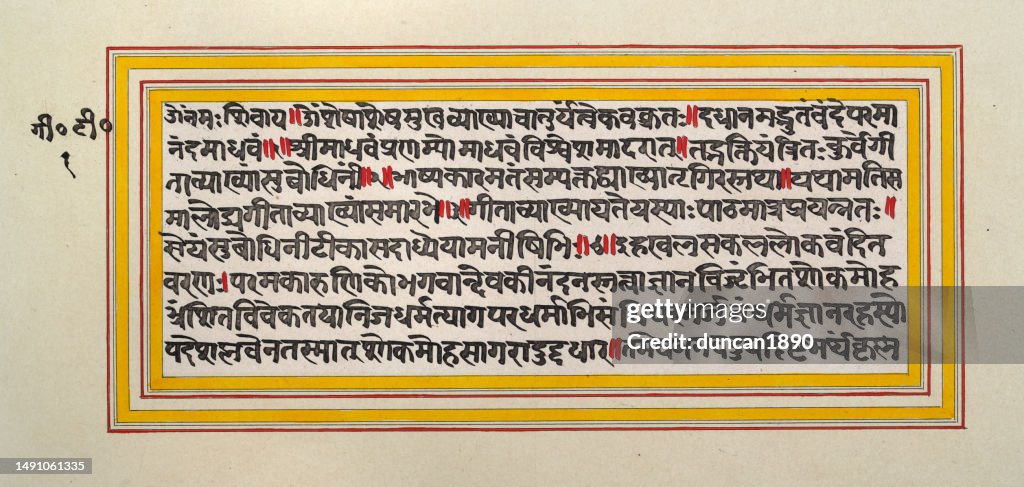 गी० टी०
१
ॐनमःशिवाय॥ॐशेषाशेषमुखव्याख्याचातुर्यंत्वेकवक्त्रतः॥दधानमद्भुतंवंदेपरमा
नंदमाधवं॥१॥श्रीमाधवंप्रणम्योमाधवंविश्वेशमादरात॥तद्भक्तियंत्रितःकुर्वेगी
ताव्याख्यासुबोधिनीं॥२॥भाष्यकारमतंसम्यक्तद्व्याख्यातृगिरस्तथा॥यथामतिस
मालोच्यगीताव्याख्यांसमारभे॥३॥गीताव्याख्यायतेयस्याःपाठमात्रप्रयत्नतः॥
सेयंसुबोधिनीटीकासदाध्येयामनीषिभिः॥४॥इहखलुसकललोकवंदित
चरणः।परमकारुणिकोभगवान्देवकीनंदनस्तत्त्वाज्ञानविजृंभितशोकमोह
भ्रंशितविवेकतयानिजधर्मत्यागपरधर्माभिसंधिपरमर्जुनंधर्मज्ञानरहस्यो
पदेशप्लवेनतस्मात्शोकमोहसागरादुद्दधार॥तमेवभगवदुपदिष्टमर्थंकृष्ण
gettyimages
duncan1890
1491061335